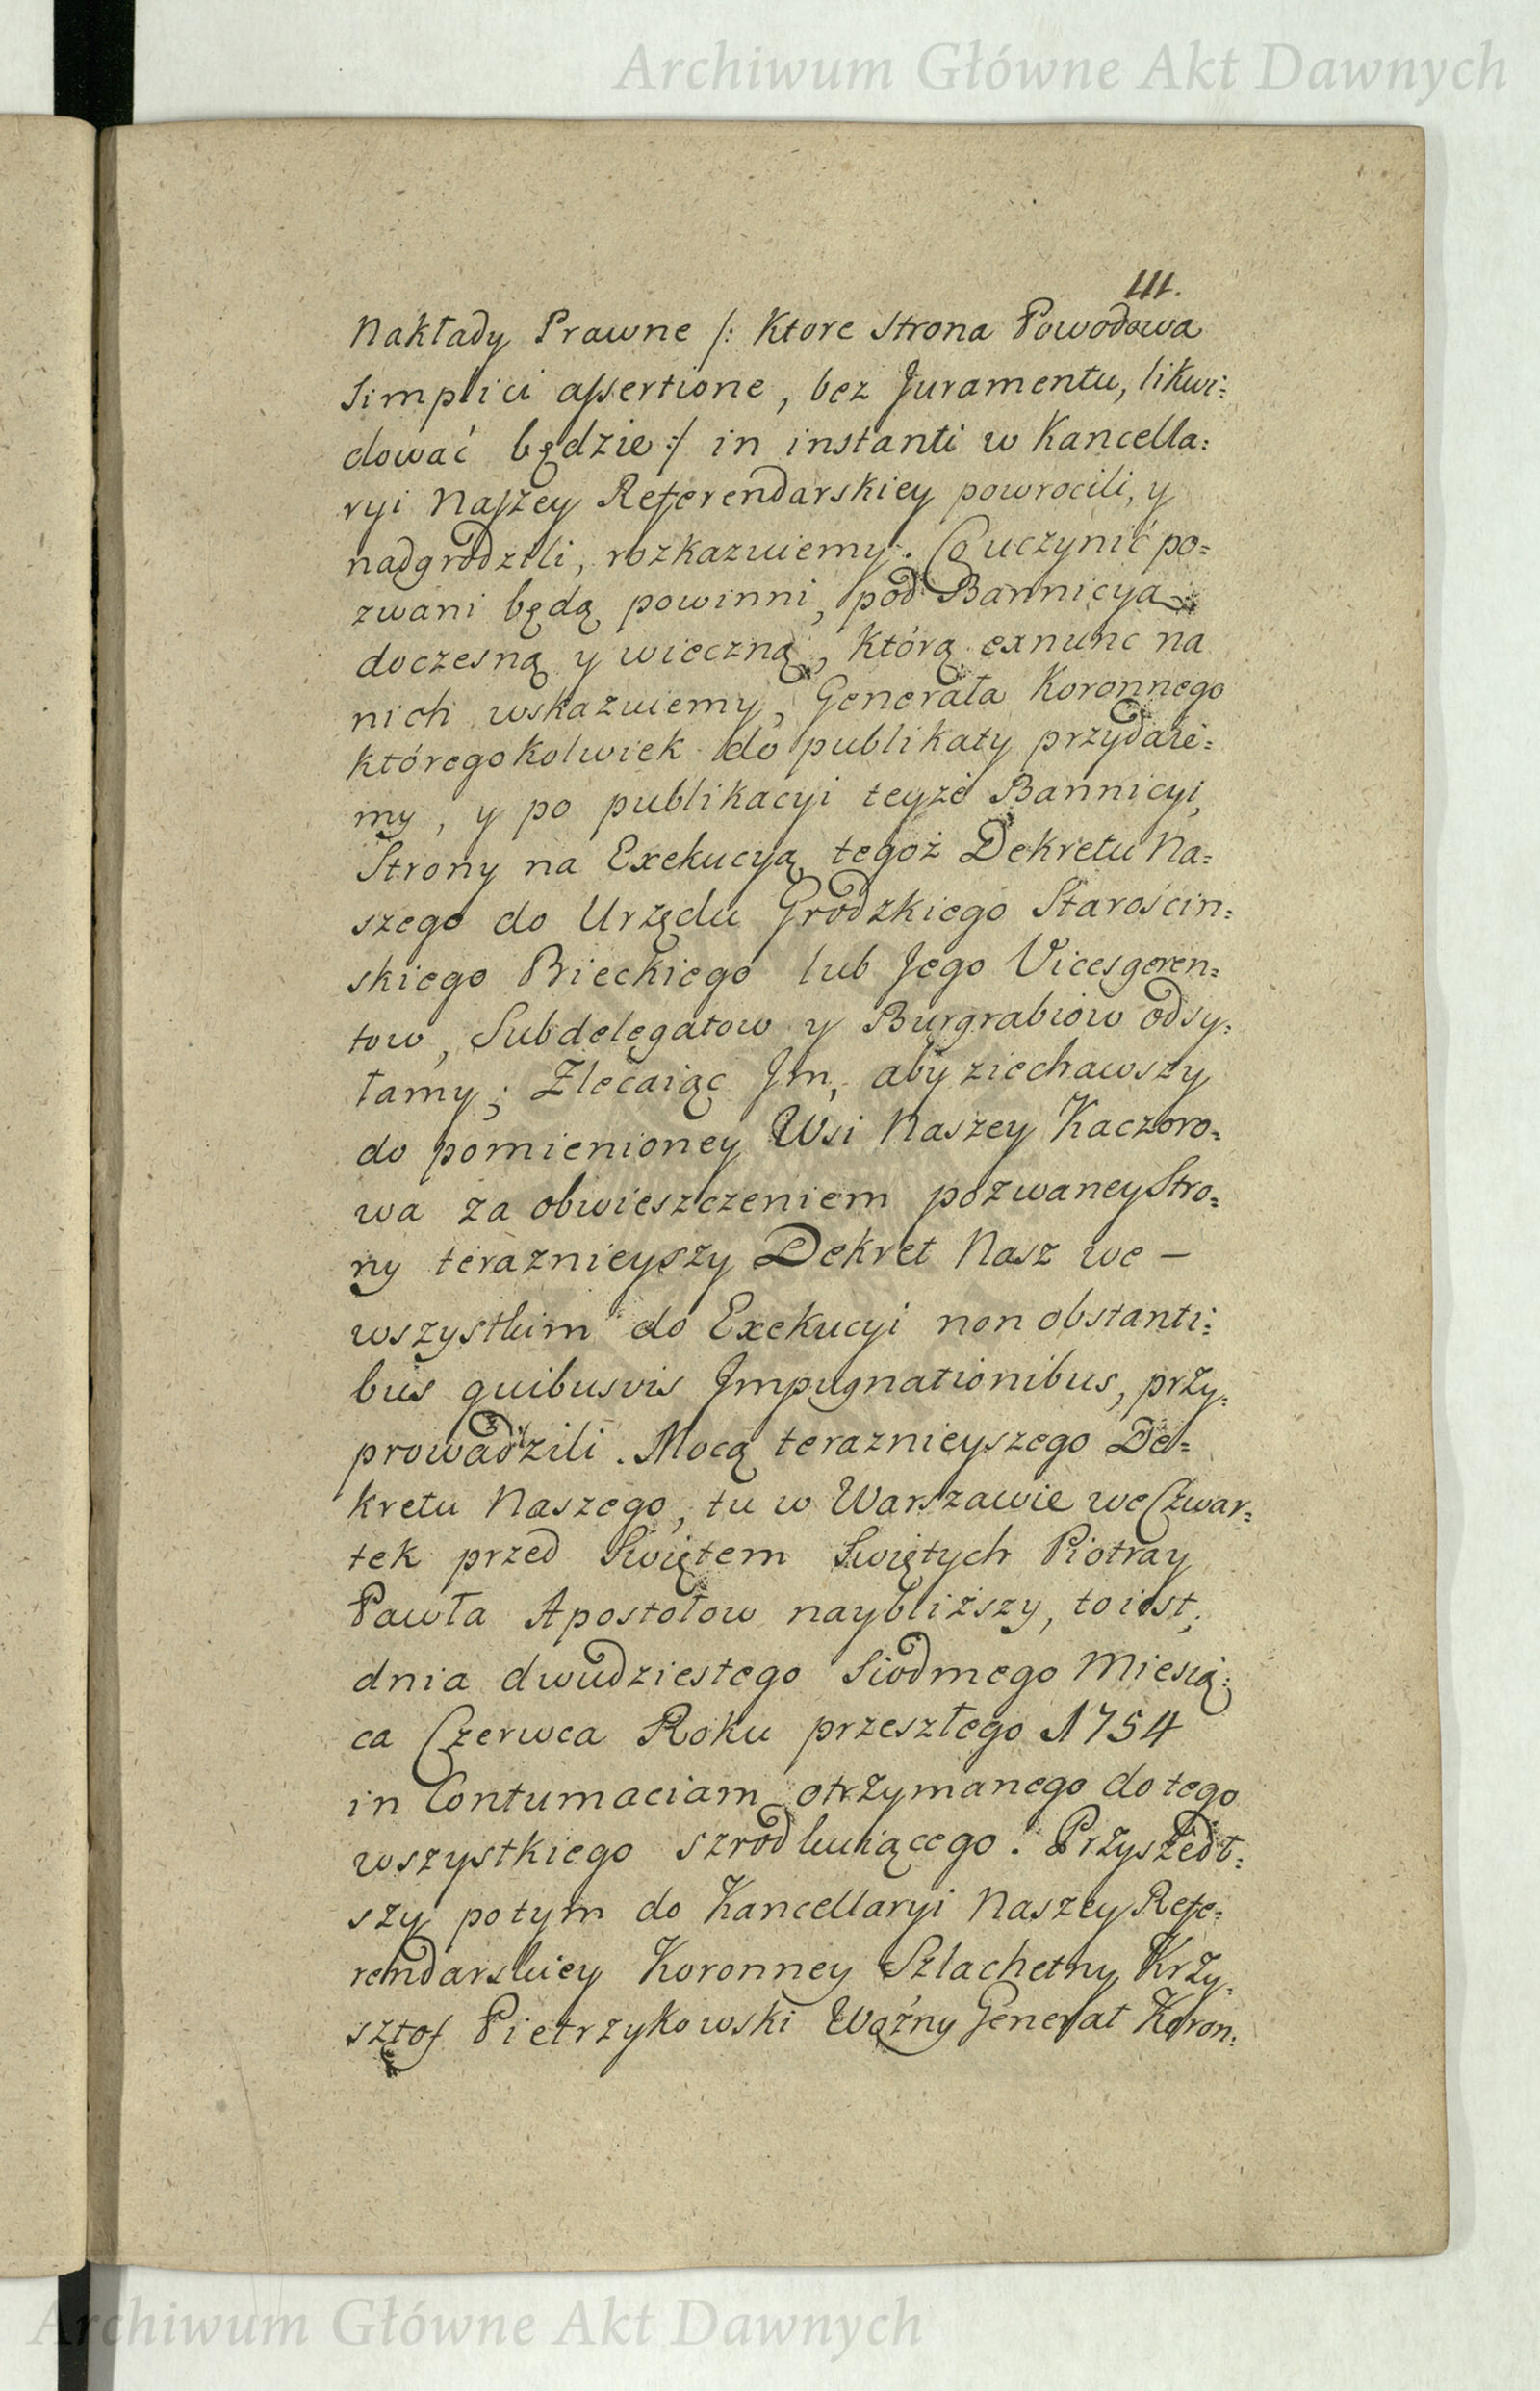 Archiwum Główne Akt Dawnych
111.
Nakłady Prawne /: Ktore Strona Powodowa
Simplici assertione, bez Juramentu, likwi=
dować będzie :/ in instanti w Kancella=
ryi Naszey Referendarskiey powrocili, y
nadgrodzili, rozkazuiemy. Co uczynić po=
zwani będą powinni, pod Bannicyą
doczesną y wieczną, którą exnunc na
nich wskazuiemy, Generała Koronnego
któregokolwiek do publikaty przydaie=
my, y po publikacyi teyże Bannicyi,
Strony na Exekucyą tegoż Dekretu Na=
szego do Urzędu Grodzkiego Starościn=
skiego Bieckiego lub Jego Vicesgeren=
tow, Subdelegatow y Burgrabiow odsy=
łamy; Zlecaiąc Jm, aby ziechawszy
do pomienioney Wsi Naszey Kaczoro=
wa za obwieszczeniem pozwaney Stro=
ny teraznieyszy Dekret Nasz we —
wszystkim do Exekucyi non obstanti=
bus quibusvis Jmpugnationibus, przy=
prowadzili. Mocą teraznieyszego De=
kretu Naszego, tu w Warszawie we Czwar=
tek przed Swiętem Swiętych Piotra y
Pawła Apostołow naybliższy, to iest,
dnia dwudziestego Siodmego Miesią=
ca Czerwca Roku przeszłego 1754
in Contumaciam otrzymanego do tego
wszystkiego szrodkuiącego. Przyszedł=
szy potym do Kancellaryi Naszey Refe=
rendarskiey Koronney Szlachetny Krzy=
sztof Pietrzykowski Woźny Generał Koron=
Archiwum Główne Akt Dawnych